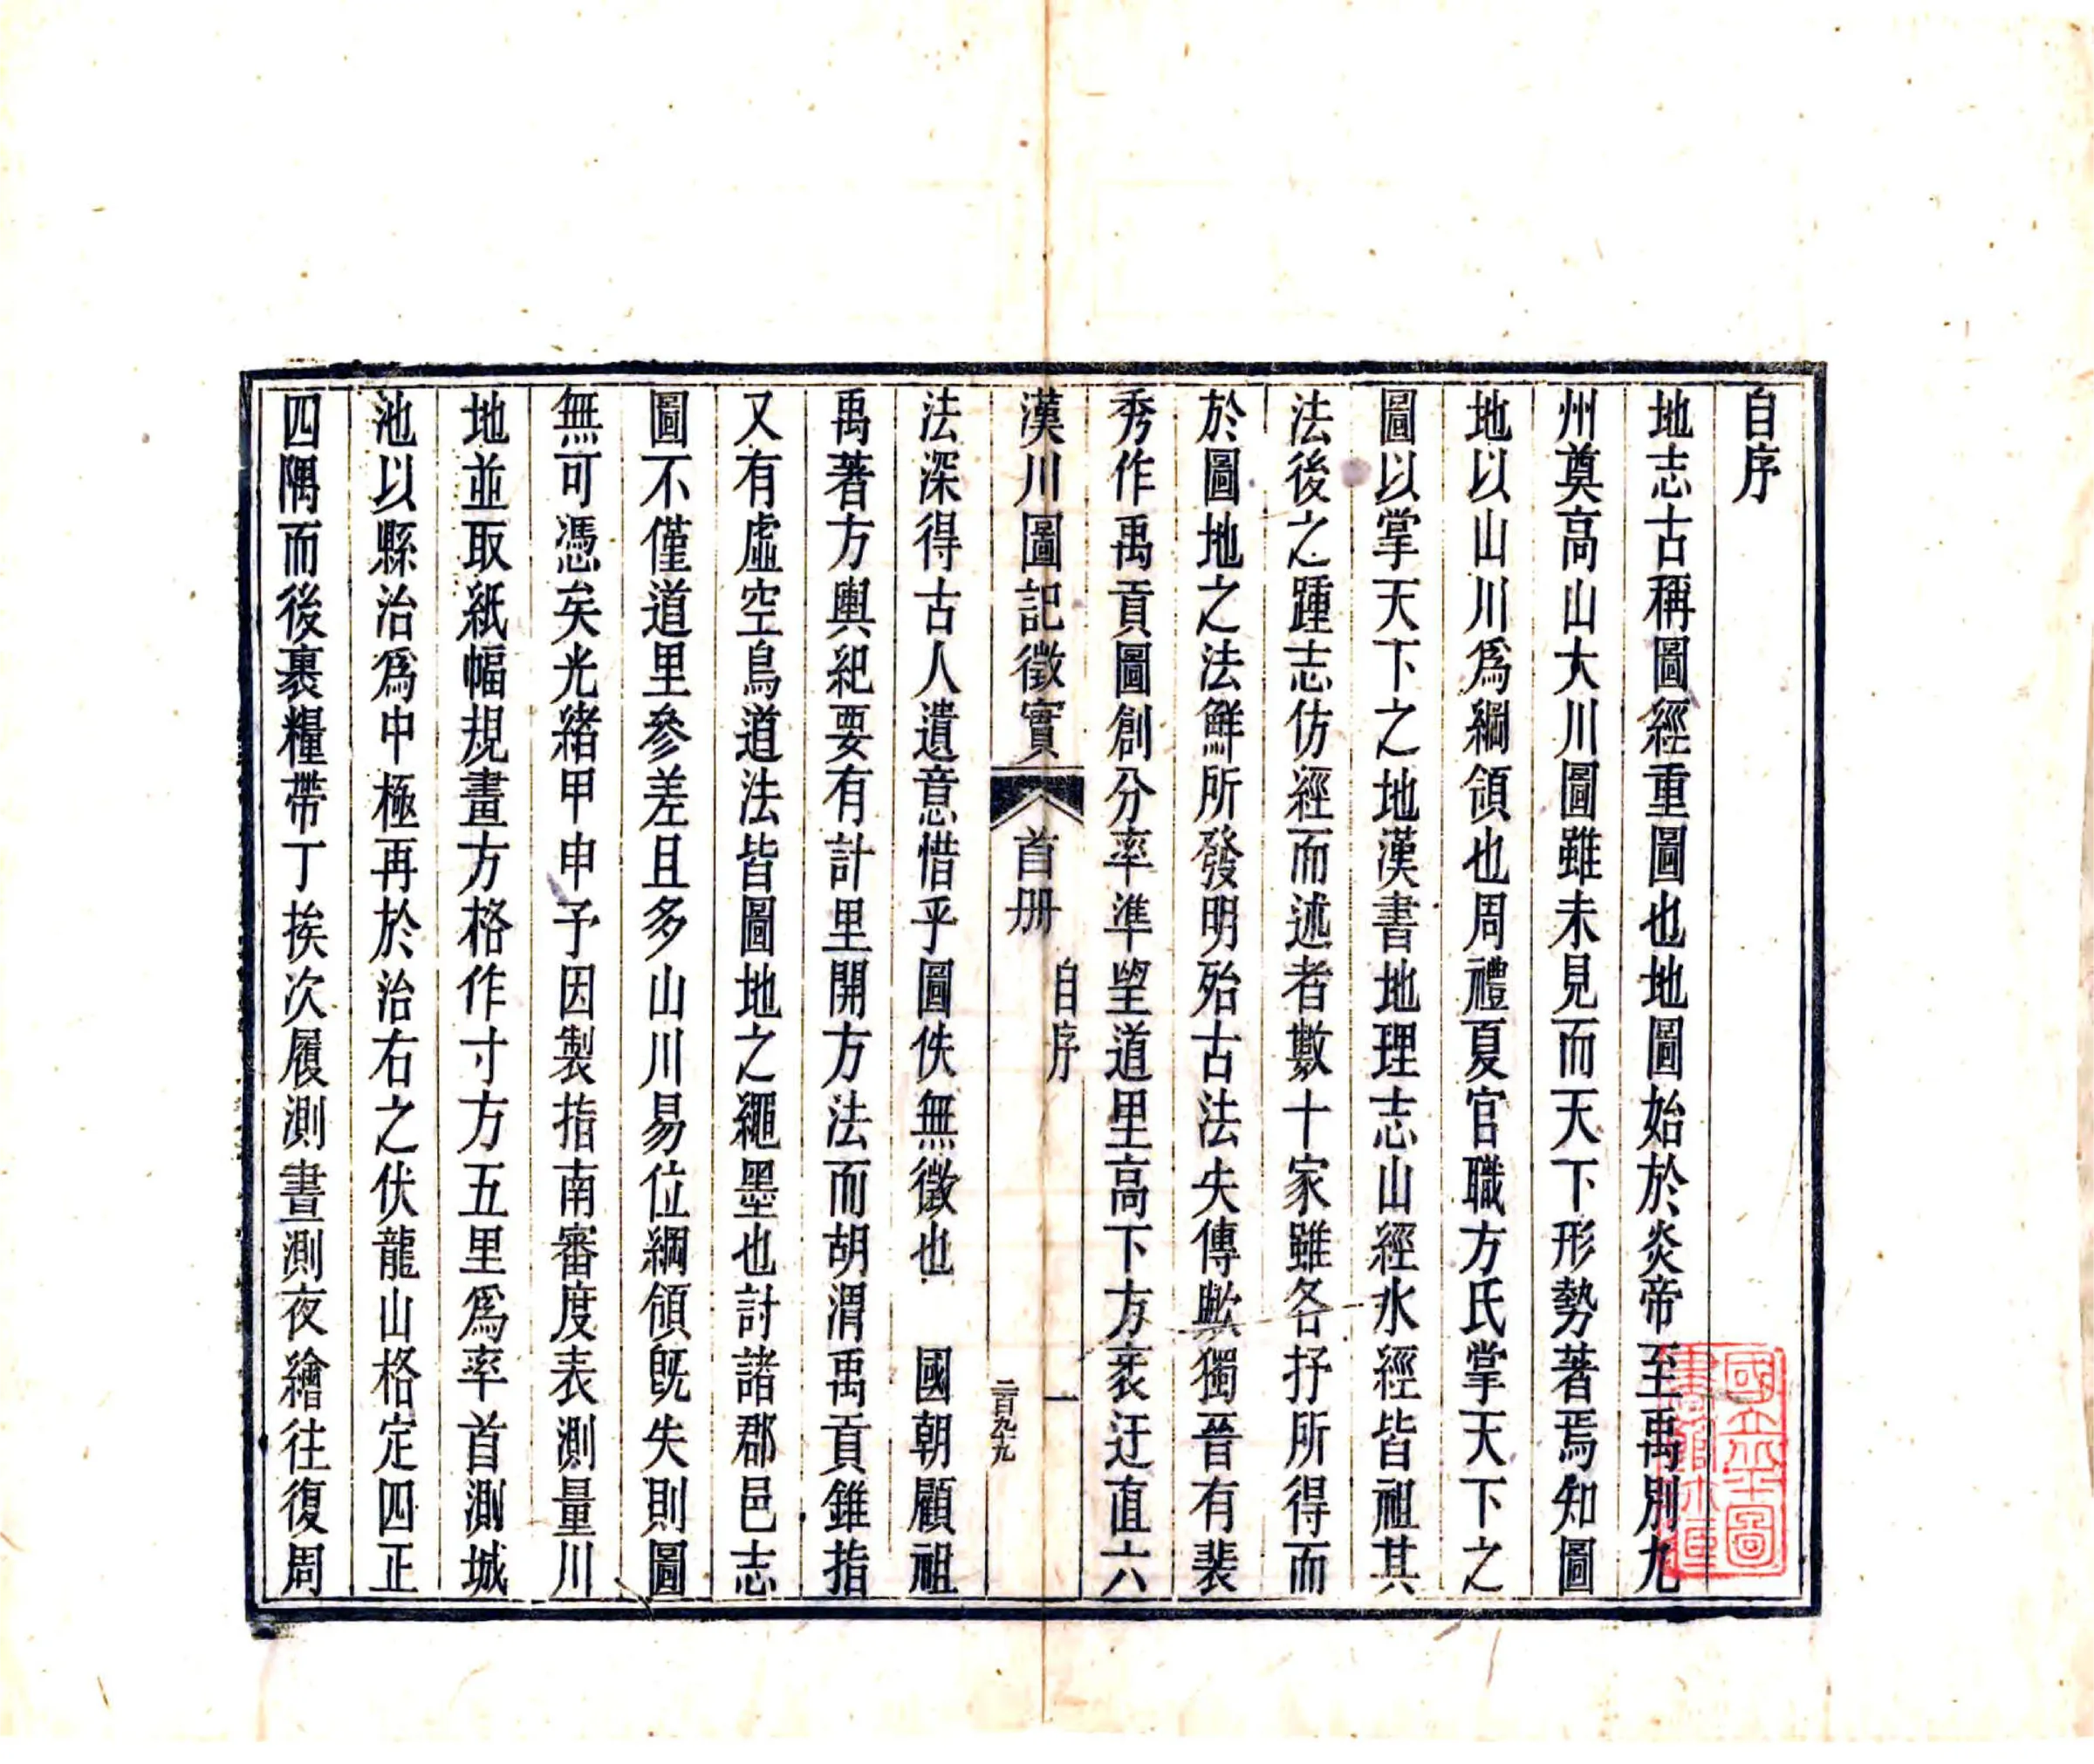 自序
地志古稱圖經重圖也地圖始於炎帝至禹別九
州奠高山大川圖雖未見而天下形勢著焉知圖
地以山川爲綱領也周禮夏官職方氏掌天下之
圖以掌天下之地漢書地理志山經水經皆祖其
法後之踵志仿經而述者數十家雖各抒所得而
於圖地之法鮮所發明殆古法失傳歟獨晉有裴
秀作禹貢圖創分率準望道里高下方衺迂直六
漢川圖記徵實 首册 自序 一 二百九九
法深得古人遺意惜乎圖佚無徵也 國朝顧祖
禹著方輿紀要有計里開方法而胡渭禹貢錐指
又有虛空鳥道法皆圖地之繩墨也討諸郡邑志
圖不僅道里參差且多山川易位綱領旣失則圖
無可憑矣光緒甲申予因製指南審度表測量川
地並取紙幅規畫方格作寸方五里爲率首測城
池以縣治爲中極再於治右之伏龍山格定四正
四隅而後裹糧帶丁挨次履測晝測夜繪往復周
國立北平圖
書館木匧